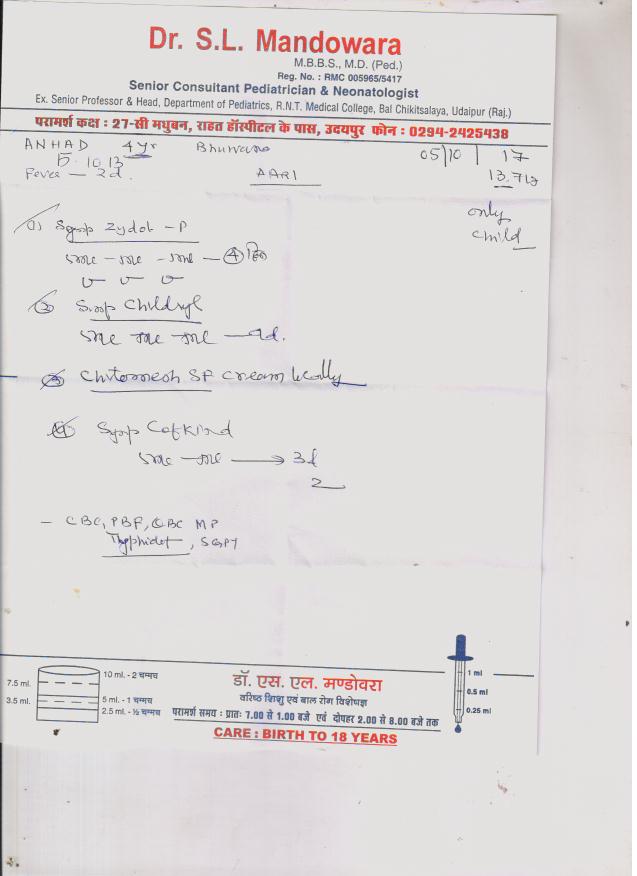 Dr. S.L. Mandowara
M.B.B.S., M.D. (Ped.)
Reg. No. : RMC 005965/5417
Senior Consultant Pediatrician & Neonatologist
Ex. Senior Professor & Head, Department of Pediatrics, R.N.T. Medical College, Bal Chikitsalaya, Udaipur (Raj.)
परामर्श कक्ष : 27-सी मधुबन, राहत हॉस्पीटल के पास, उदयपुर फोन : 0294-2425438
ANHAD 4yr 05/10/17
10.13
Fever — 2d. AARI 13.7
only
child
① Syrup Zydol - P
④ दिन
② Syrup Childryl
③ SF cream locally
④ Syrup Cefkind
3d
2
- CBC, PBF, QBC MP
Typhidot, SGPT
7.5 ml. 10 ml. - 2 चम्मच
3.5 ml. 5 ml. - 1 चम्मच
2.5 ml. - ½ चम्मच
डॉ. एस. एल. मण्डोवरा
वरिष्ठ शिशु एवं बाल रोग विशेषज्ञ
परामर्श समय : प्रातः 7.00 से 1.00 बजे एवं दोपहर 2.00 से 8.00 बजे तक
CARE : BIRTH TO 18 YEARS
1 ml
0.5 ml
0.25 ml